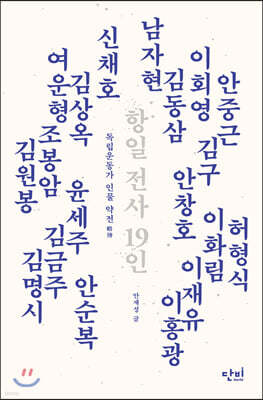 안중근
이회영
김구
남자현
김동삼
안창호
허형식
이화림
이재유
이홍광
항일 전사 19인
독립운동가 인물 약전 略傳
신채호
김상옥
여운형
조봉암
김원봉
윤세주
안순복
김금주
김명시
안재성 글
단비
yes24